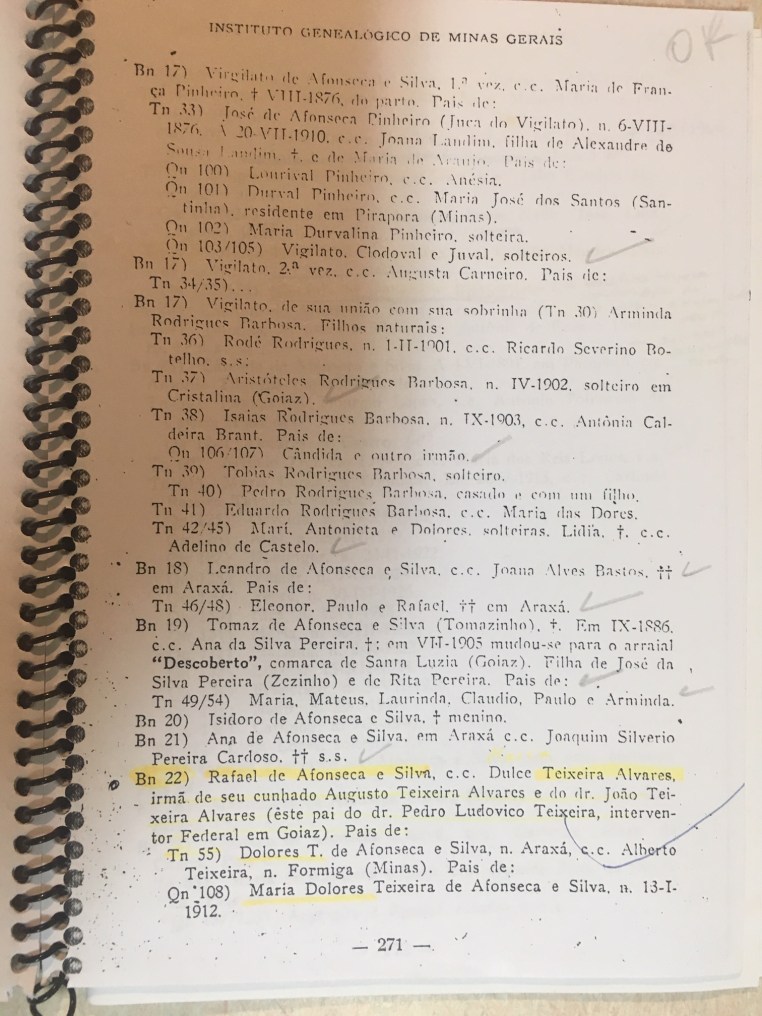 INSTITUTO GENEALÓGICO DE MINAS GERAIS
OK
Bn 17) Virgilato de Afonseca e Silva, 1.ª vez, c.c. Maria de Fran-
ça Pinheiro, † VIII-1876, do parto. Pais de:
Tn 33) José de Afonseca Pinheiro (Juca do Vigilato), n. 6-VIII-
1876. A 20-VII-1910, c.c. Joana Landim, filha de Alexandre de
Sousa Landim, †, e de Maria de Araujo. Pais de:
Qn 100) Lourival Pinheiro, c.c. Anésia.
Qn 101) Durval Pinheiro, c.c. Maria José dos Santos (San-
tinha), residente em Pirapora (Minas).
Qn 102) Maria Durvalina Pinheiro, solteira.
Qn 103/105) Vigilato, Clodoval e Juval, solteiros.
Bn 17) Vigilato, 2.ª vez, c.c. Augusta Carneiro. Pais de:
Tn 34/35)...
Bn 17) Vigilato, de sua união com sua sobrinha (Tn 30) Arminda
Rodrigues Barbosa. Filhos naturais:
Tn 36) Rodé Rodrigues, n. 1-II-1901, c.c. Ricardo Severino Bo-
telho, s.s:
Tn 37) Aristóteles Rodrigues Barbosa, n. IV-1902, solteiro em
Cristalina (Goiaz).
Tn 38) Isaias Rodrigues Barbosa, n. IX-1903, c.c. Antônia Cal-
deira Brant. Pais de:
Qn 106/107) Cândida e outro irmão.
Tn 39) Tobias Rodrigues Barbosa, solteiro.
Tn 40) Pedro Rodrigues Barbosa, casado e com um filho.
Tn 41) Eduardo Rodrigues Barbosa, c.c. Maria das Dores.
Tn 42/45) Marí, Antonieta e Dolores, solteiras. Lidia, †, c.c.
Adelino de Castelo.
Bn 18) Leandro de Afonseca e Silva, c.c. Joana Alves Bastos, ††
em Araxá. Pais de:
Tn 46/48) Eleonor, Paulo e Rafael, †† em Araxá.
Bn 19) Tomaz de Afonseca e Silva (Tomazinho), †. Em IX-1886,
c.c. Ana da Silva Pereira, †; em VII-1905 mudou-se para o arraial
"Descoberto", comarca de Santa Luzia (Goiaz). Filha de José da
Silva Pereira (Zezinho) e de Rita Pereira. Pais de:
Tn 49/54) Maria, Mateus, Laurinda, Claudio, Paulo e Arminda.
Bn 20) Isidoro de Afonseca e Silva, † menino.
Bn 21) Ana de Afonseca e Silva, em Araxá c.c. Joaquim Silverio
Pereira Cardoso, †† s.s.
Bn 22) Rafael de Afonseca e Silva, c.c. Dulce Teixeira Alvares,
irmã de seu cunhado Augusto Teixeira Alvares e do dr. João Tei-
xeira Alvares (êste pai do dr. Pedro Ludovico Teixeira, interven-
tor Federal em Goiaz). Pais de:
Tn 55) Dolores T. de Afonseca e Silva, n. Araxá, c.c. Alberto
Teixeira, n. Formiga (Minas). Pais de:
Qn 108) Maria Dolores Teixeira de Afonseca e Silva, n. 13-I-
1912.
— 271 —